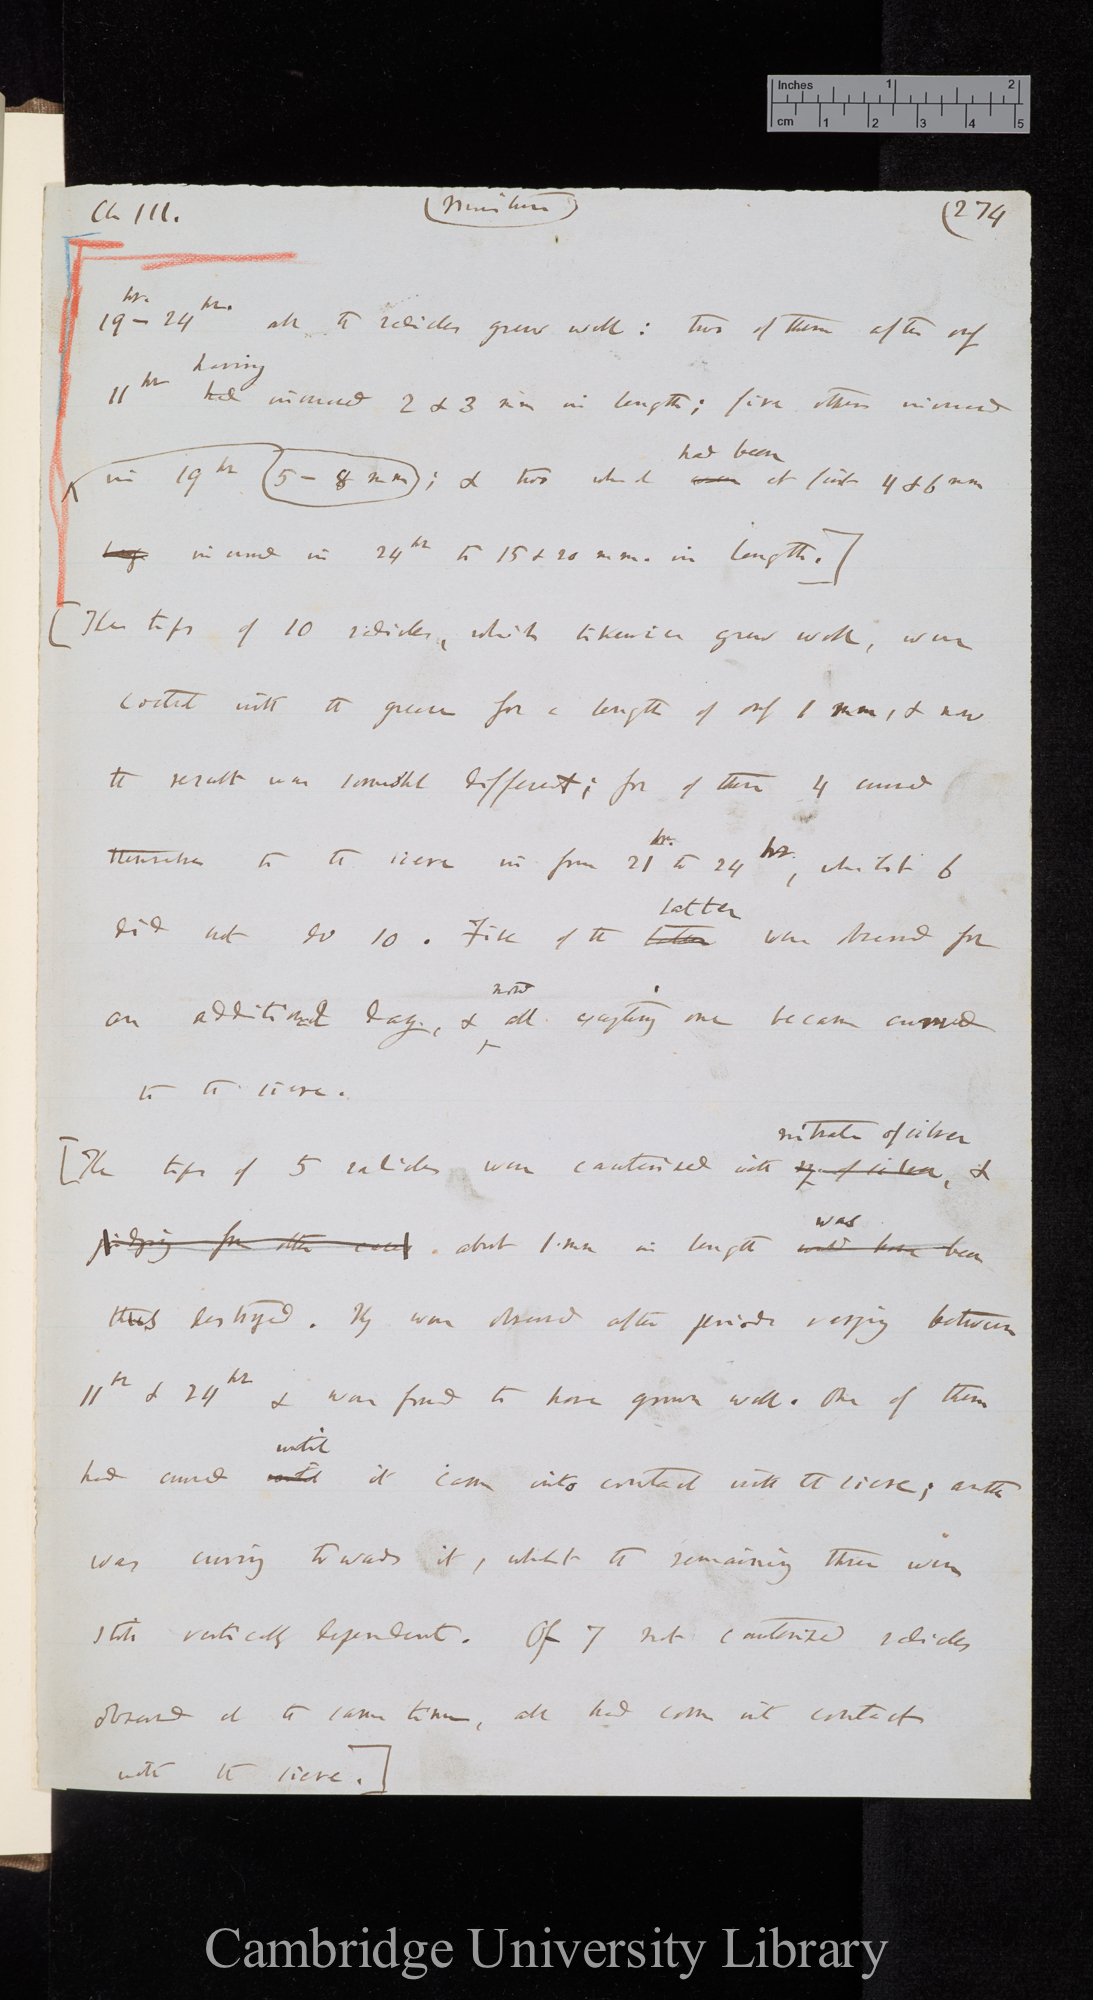 Inches 1 2
cm 1 2 3 4 5
Ch III. (Moisture) (274
hr. hr.
19 – 24 all the radicles grew well: two of them after only
having
11 hr had increased 2 & 3 mm in length; five others increased
had been
in 19 hr (5 – 8 mm); & two which were at first 4 & 6 mm
long increased in 24 hr to 15 & 20 mm. in length.]
[The tips of 10 radicles, which likewise grew well, were
coated with the grease for a length of only 1 mm, & now
the result was somewhat different; for of these 4 curved
hr. hr.
themselves to the sieve in from 21 to 24, whilst 6
latter
did not do so. Five of the were observed for
now
an additional day, & all excepting one became curved
to the sieve.
nitrate of silver
[The tips of 5 radicles were cauterised with of silver, &
was
judging from other cases about 1 mm in length would have been
thus destroyed. They were observed after periods varying between
11 hr & 24 hr & were found to have grown well. One of them
until
had curved until it came into contact with the sieve; another
was curving towards it, whilst the remaining three were
still vertically dependent. Of 7 not cauterised radicles
observed at the same time, all had come into contact
with the sieve.]
Cambridge University Library